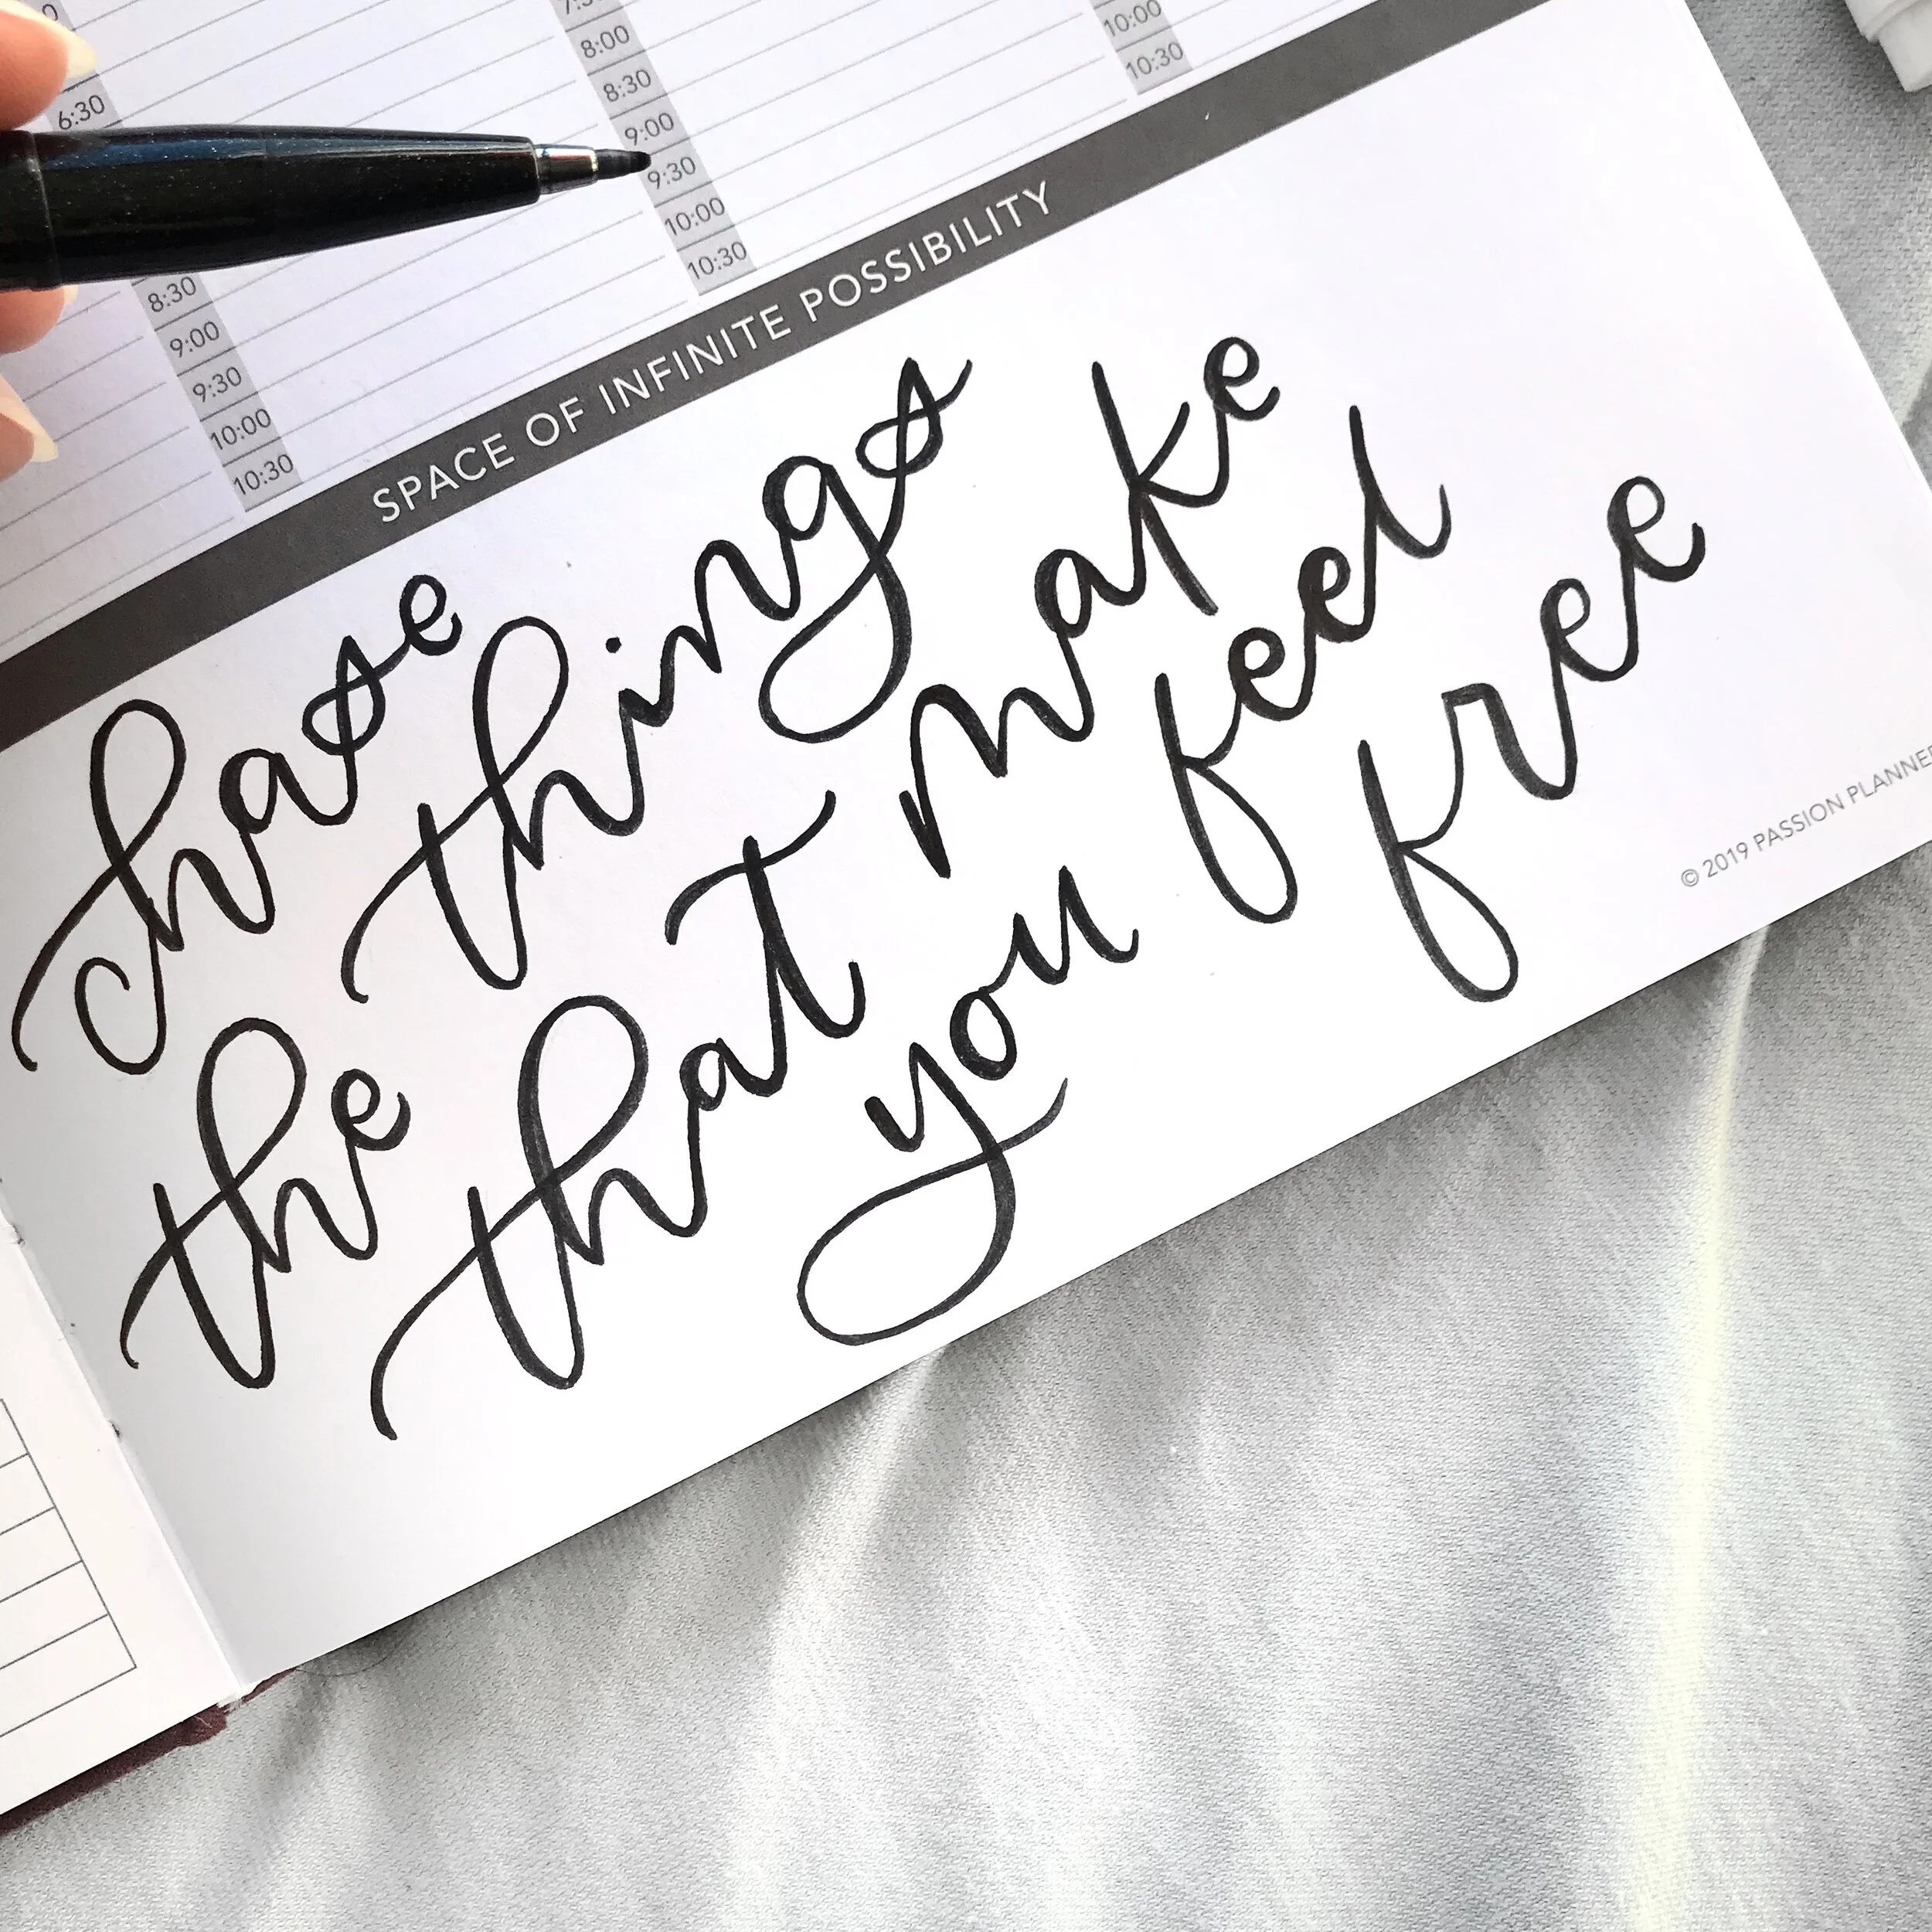 6:30
8:30
9:00
9:30
10:00
10:30
8:00
8:30
9:00
9:30
10:00
10:30
10:00
10:30
SPACE OF INFINITE POSSIBILITY
chase
the
things
that
make
you
feel
free
© 2019 PASSION PLANNER